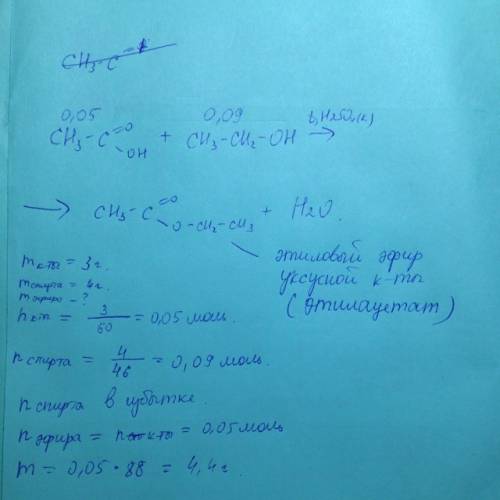 CH₃-C
0,05 0,09
CH₃-C=O OH + CH₃-CH₂-OH t, H₂SO₄(к) →
→ CH₃-C=O O-CH₂-CH₃ + H₂O.
этиловый эфир
уксусной к-ты
(этилацетат)
mк-ты = 3 г.
mспирта = 4 г.
mэфира - ?
nк-ты = 3/60 = 0,05 моль.
nспирта = 4/46 = 0,09 моль.
nспирта в избытке.
nэфира = nк-ты = 0,05 моль
m = 0,05 · 88 = 4,4 г.